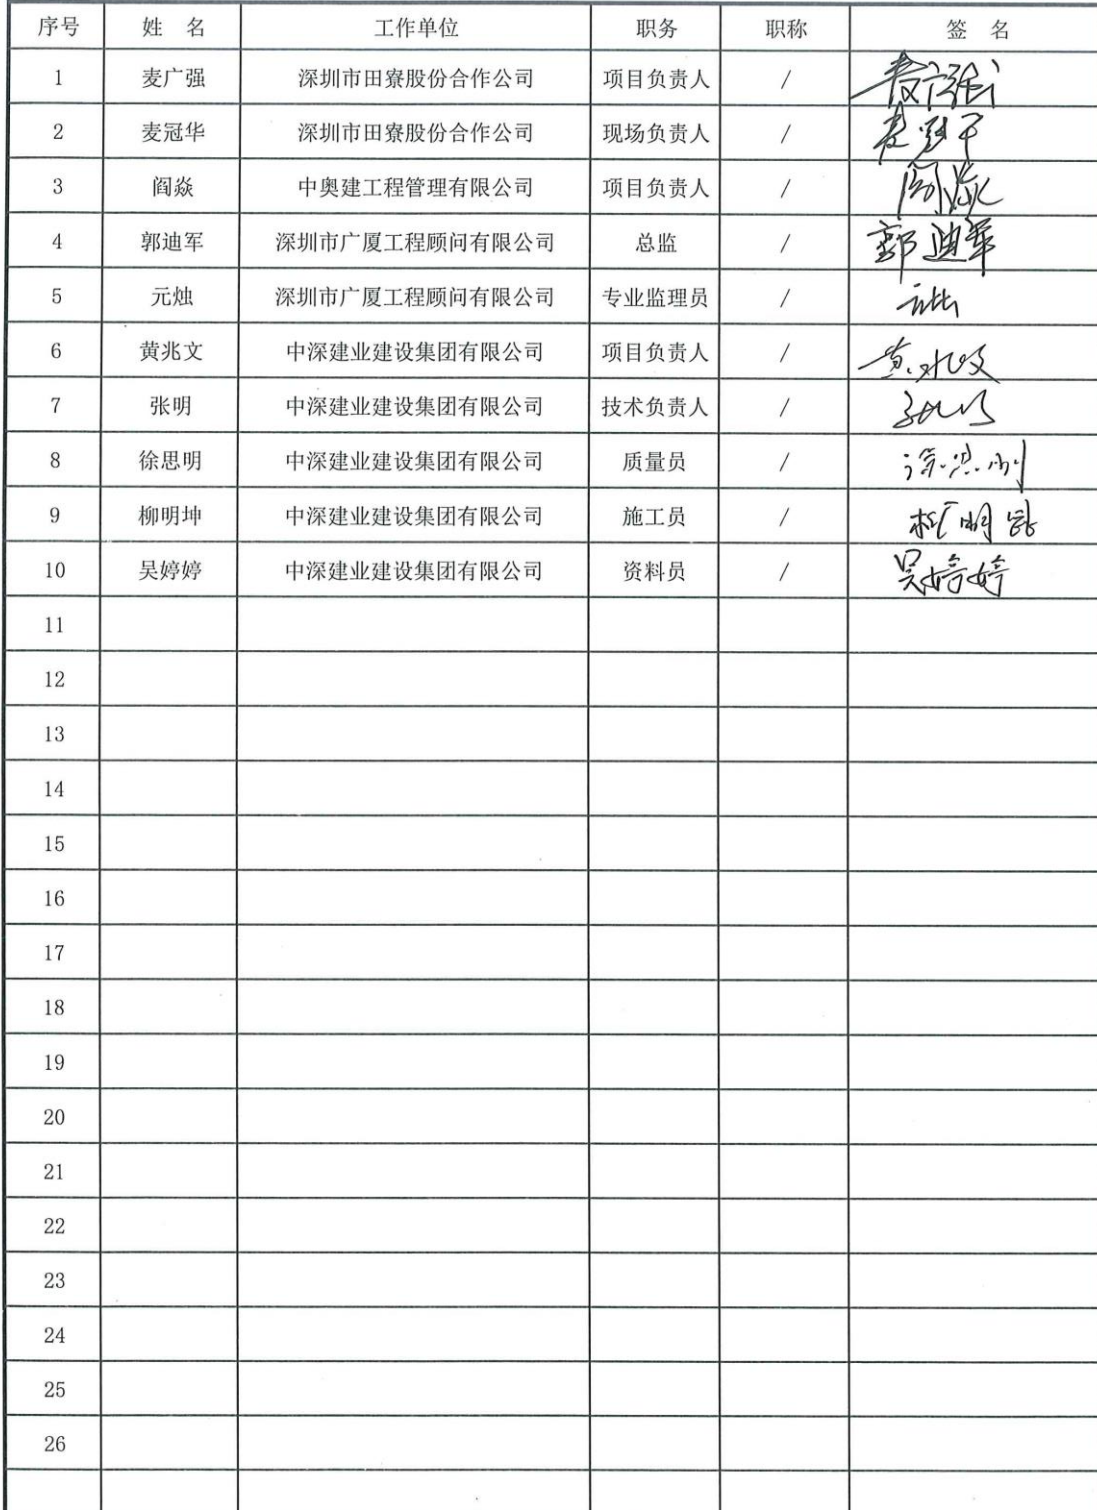 序号 姓 名 工作单位 职务 职称 签 名
1 麦广强 深圳市田寮股份合作公司 项目负责人 / 麦广强
2 麦冠华 深圳市田寮股份合作公司 现场负责人 /
3 阎焱 中奥建工程管理有限公司 项目负责人 / 阎焱
4 郭迪军 深圳市广厦工程顾问有限公司 总监 / 郭迪军
5 元烛 深圳市广厦工程顾问有限公司 专业监理员 /
6 黄兆文 中深建业建设集团有限公司 项目负责人 / 黄兆文
7 张明 中深建业建设集团有限公司 技术负责人 / 张明
8 徐思明 中深建业建设集团有限公司 质量员 / 徐思明
9 柳明坤 中深建业建设集团有限公司 施工员 / 柳明坤
10 吴婷婷 中深建业建设集团有限公司 资料员 / 吴婷婷
11
12
13
14
15
16
17
18
19
20
21
22
23
24
25
26